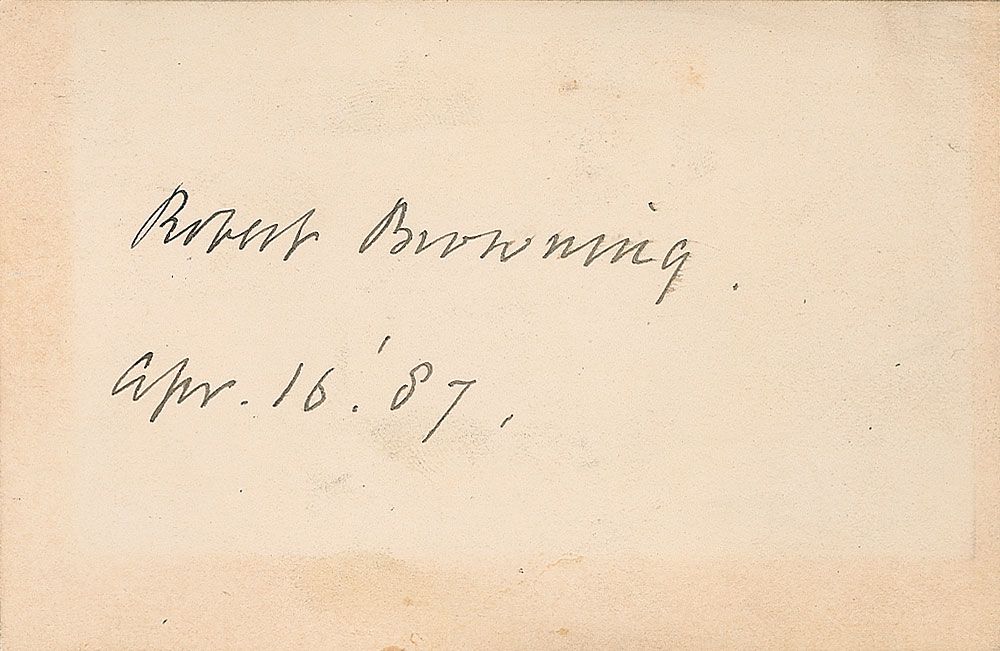 Robert Browning.
Apr. 16. '87.